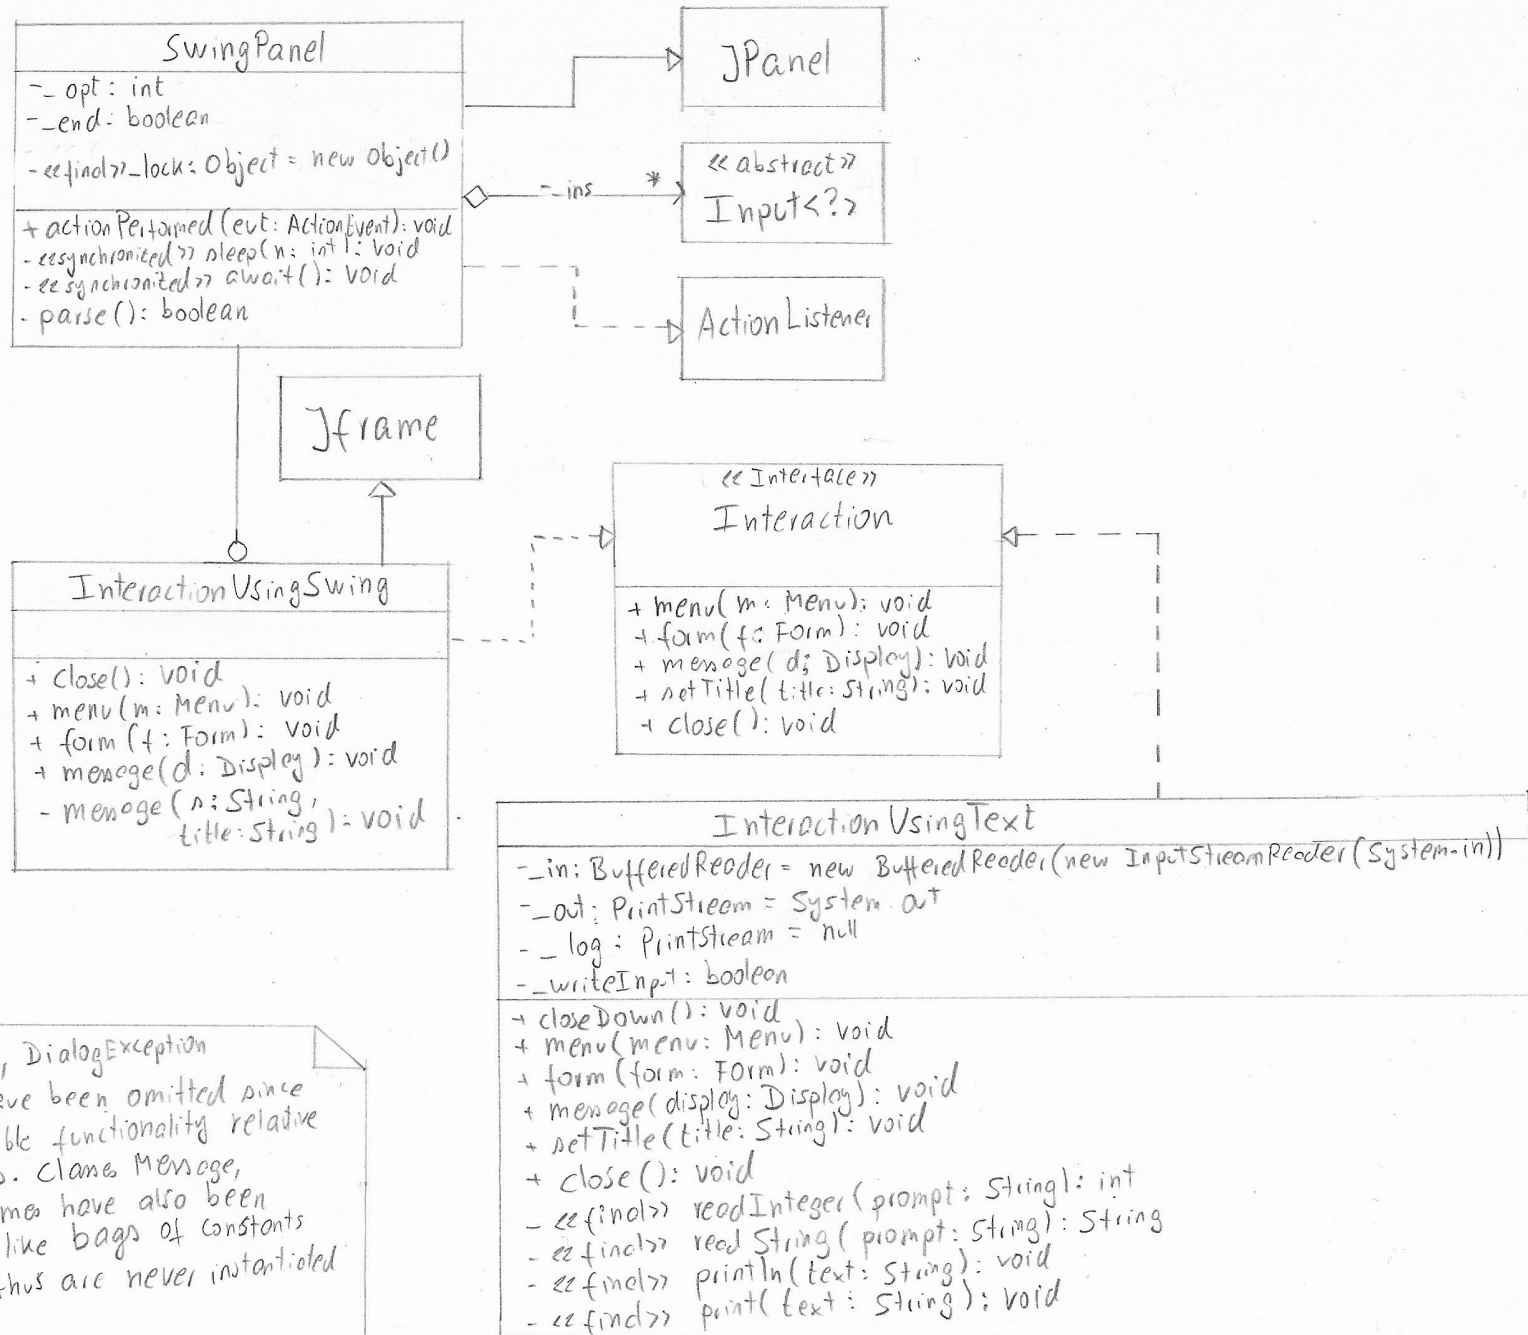 SwingPanel
-_opt: int
-_end: boolean
-«final»_lock: Object = new Object()
+ actionPerformed(evt: ActionEvent): void
- «synchronized» sleep(n: int): void
- «synchronized» await(): void
- parse(): boolean
JPanel
-_ins
*
«abstract»
Input<?>
ActionListener
Jframe
«Interface»
Interaction
+ menu(m: Menu): void
+ form(f: Form): void
+ message(d: Display): void
+ setTitle(title: String): void
+ close(): void
InteractionUsingSwing
+ close(): void
+ menu(m: Menu): void
+ form(f: Form): void
+ message(d: Display): void
- message(s: String,
title: String): void
InteractionUsingText
-_in: BufferedReader = new BufferedReader(new InputStreamReader(System.in))
-_out: PrintStream = System.out
-_log: PrintStream = null
-_writeInput: boolean
+ closeDown(): void
+ menu(menu: Menu): void
+ form(form: Form): void
+ message(display: Display): void
+ setTitle(title: String): void
+ close(): void
- «final» readInteger(prompt: String): int
- «final» readString(prompt: String): String
- «final» println(text: String): void
- «final» print(text: String): void
, DialogException
ve been omitted since
ble functionality relative
s. Classes Message,
mes have also been
like bags of constants
thus are never instantiated